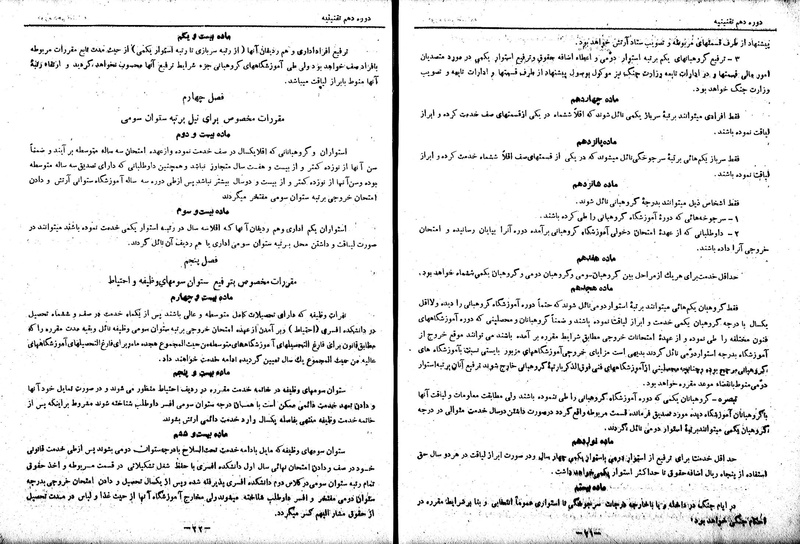 دوره دهم تقنینیه
پیشنهاد از طرف قسمتهای مربوطه و تصویب ستاد ارتش خواهد بود.
۳ - ترفیع گروهبانهای یکم برتبه استوار دومی و اعطاء اضافه حقوق و ترفیع استوار یکمی در مورد متصدیان
امور مالی قسمتها و در ادارات تابعه وزارت جنگ نیز موکول بوصول پیشنهاد از طرف قسمتها و ادارات تابعه و تصویب
وزارت جنگ خواهد بود.
ماده چهاردهم
فقط افرادی میتوانند برتبهٔ سرباز یکمی نائل شوند که اقلاً ششماه در یکی از قسمتهای صف خدمت کرده و ابراز
لیاقت نموده باشند.
ماده پانزدهم
فقط سرباز یکم‌هائی برتبهٔ سرجوخگی نائل میشوند که در یکی از قسمتهای صف اقلاً ششماه خدمت کرده و ابراز
لیاقت نموده باشند.
ماده شانزدهم
فقط اشخاص ذیل میتوانند بدرجهٔ گروهبانی نائل شوند.
۱ - سرجوخه‌هائی که دورهٔ آموزشگاه گروهبانی را طی کرده باشند.
۲ - داوطلبانی که از عهدهٔ امتحان دخولی آموزشگاه گروهبانی برآمده دوره آنرا بپایان رسانیده و امتحان
خروجی آنرا داده باشند.
ماده هفدهم
حداقل خدمت برای هریک از مراحل بین گروهبان‌سومی و گروهبان دومی و گروهبان یکمی ششماه خواهد بود.
ماده هیجدهم
فقط گروهبان یکم‌هائی میتوانند برتبهٔ استوار دومی نائل شوند که حتماً دوره آموزشگاه گروهبانی را دیده ولااقل
یکسال با درجه گروهبان یکمی خدمت و ابراز لیاقت نموده باشند و ضمناً گروهبانان و محصلینی که دوره آموزشگاههای
فنون مختلفه را طی نموده و از عهدهٔ امتحانات خروجی مطابق شرایط مقرره بر آمده باشند می توانند موقع خروج از
آموزشگاه بدرجه استوار دومی نائل گردند بدیهی است مزایای خروجی آموزشگاههای مزبور بایستی نسبت بآموزشگاه های
گروهبانی مرجح بوده و چنانچه محصلینی از آموزشگاههای فنی فوق‌الذکر با رتبهٔ گروهبانی خارج شوند ترفیع آنان برتبه استوار
دومی منوط بانقضاء موعد مقرره خواهد بود.
تبصره - گروهبانان یکمی که دوره آموزشگاه گروهبانی را طی ننموده باشند ولی مطابقت معلومات و لیاقت آنها
با گروهبانان آموزشگاه دیده مورد تصدیق فرمانده قسمت مربوطه واقع گردد در صورت داشتن دو سال خدمت متوالی در درجه
گروهبان یکمی میتوانند برتبهٔ استوار دومی نائل گردند.
ماده نوزدهم
حد اقل خدمت برای ترفیع از استوار دومی باستوار یکمی چهار سال و در صورت ابراز لیاقت در هر دو سال حق
استفاده از پنجاه ریال اضافه حقوق تا حداکثر استوار یکمی خواهند داشت.
ماده بیستم
در ایام جنگ در داخله و یا با خارجه درجات سرجوخگی تا استواری عموماً انتخابی و بنا بر شرایط مقرره در
احکام جنگی خواهد بود.
-۲۱-
دوره دهم تقنینیه
ماده بیست و یکم
ترفیع افراد اداری و هم ردیفان آنها (از رتبه سربازی تا رتبه استوار یکمی) از حیث مدت تابع مقررات مربوطه
بافراد صف خواهد بود ولی طی آموزشگاههای گروهبانی جزء شرایط ترفیع آنها محسوب نخواهد گردید و ارتقاء رتبهٔ
آنها منوط بابراز لیاقت میباشد.
فصل چهارم
مقررات مخصوص برای نیل برتبه ستوان سومی
ماده بیست و دوم
استواران و گروهبانانی که اقلا یکسال در صف خدمت نموده و از عهده امتحان سه ساله متوسطه بر آیند و ضمناً
سن آنها از نوزده کمتر و از بیست و هفت سال متجاوز نباشد و همچنین داوطلبانی که دارای تصدیق سه ساله متوسطه
بوده و سن آنها از نوزده کمتر و از بیست و دو سال بیشتر نباشد پس از طی دوره سه ساله آموزشگاه ستوانی آرتش و دادن
امتحان خروجی برتبه ستوان سومی مفتخر میگردند
ماده بیست و سوم
استواران یکم اداری و هم ردیفان آنها که اقلا سه سال در رتبه استوار یکمی خدمت نموده باشند میتوانند در
صورت لیاقت و داشتن محل برتبه ستوان سومی اداری یا هم ردیف آن نائل گردند.
فصل پنجم
مقررات مخصوص بترفیع ستوان سومهای وظیفه و احتیاط
ماده بیست و چهارم
نفرات وظیفه که دارای تحصیلات کامل متوسطه و عالی باشند پس از یکماه خدمت در صف و ششماه تحصیل
در دانشکده افسری (احتیاط) و بر آمدن از عهده امتحان خروجی برتبه ستوان سومی وظیفه نائل و بقیه مدت مقرره را که
مطابق قانون برای فارغ التحصیلهای آموزشگاههای متوسطه من حیث المجموع هیجده ماه و برای فارغ التحصیلهای آموزشگاههای
عالیه من حیث المجموع یک سال تعیین گردیده ادامه خدمت خواهند داد.
ماده بیست و پنجم
ستوان سومهای وظیفه در خاتمه خدمت مقرره در ردیف احتیاط منظور می شوند و در صورت تمایل خود آنها
و دادن تعهد خدمت دائمی ممکن است با همان درجه ستوان سومی افسر داوطلب شناخته شوند مشروط بر اینکه پس از
خاتمه خدمت وظیفه منتهی بفاصله یکسال وارد خدمت دائمی ارتش بشوند
ماده بیست و ششم
ستوان سومهای وظیفه که مایل بادامه خدمت تحت‌السلاح با درجه ستوان دومی بشوند پس از طی خدمت قانونی
خود در صف و دادن امتحان نهائی سال اول دانشکده افسری با حفظ شغل تشکیلاتی در قسمت مربوطه و اخذ حقوق
تمام رتبه ستوان سومی در کلاس دوم دانشکده افسری پذیرفته شده و پس از یکسال تحصیل و دادن امتحان خروجی بدرجه
ستوان دومی مفتخر و افسر داوطلب شناخته میشوند ولی مخارج آموزشگاه آنها از حیث غذا و لباس در مدت تحصیل
از حقوق مشار الیهم کسر میگردد.
-۲۲-